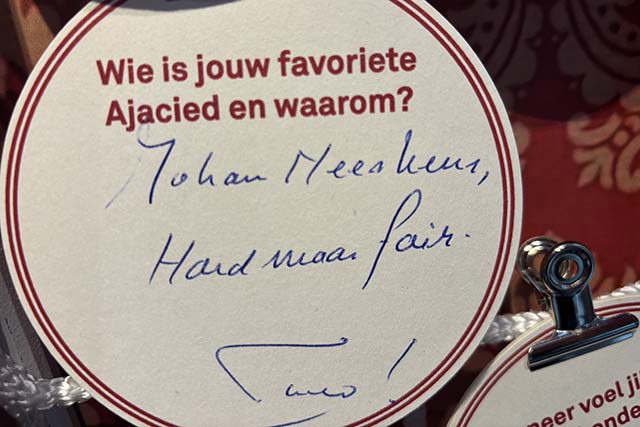 Wie is jouw favoriete
Ajacied en waarom?
Johan Neeskens,
Hard maar fair.
neer voel ji